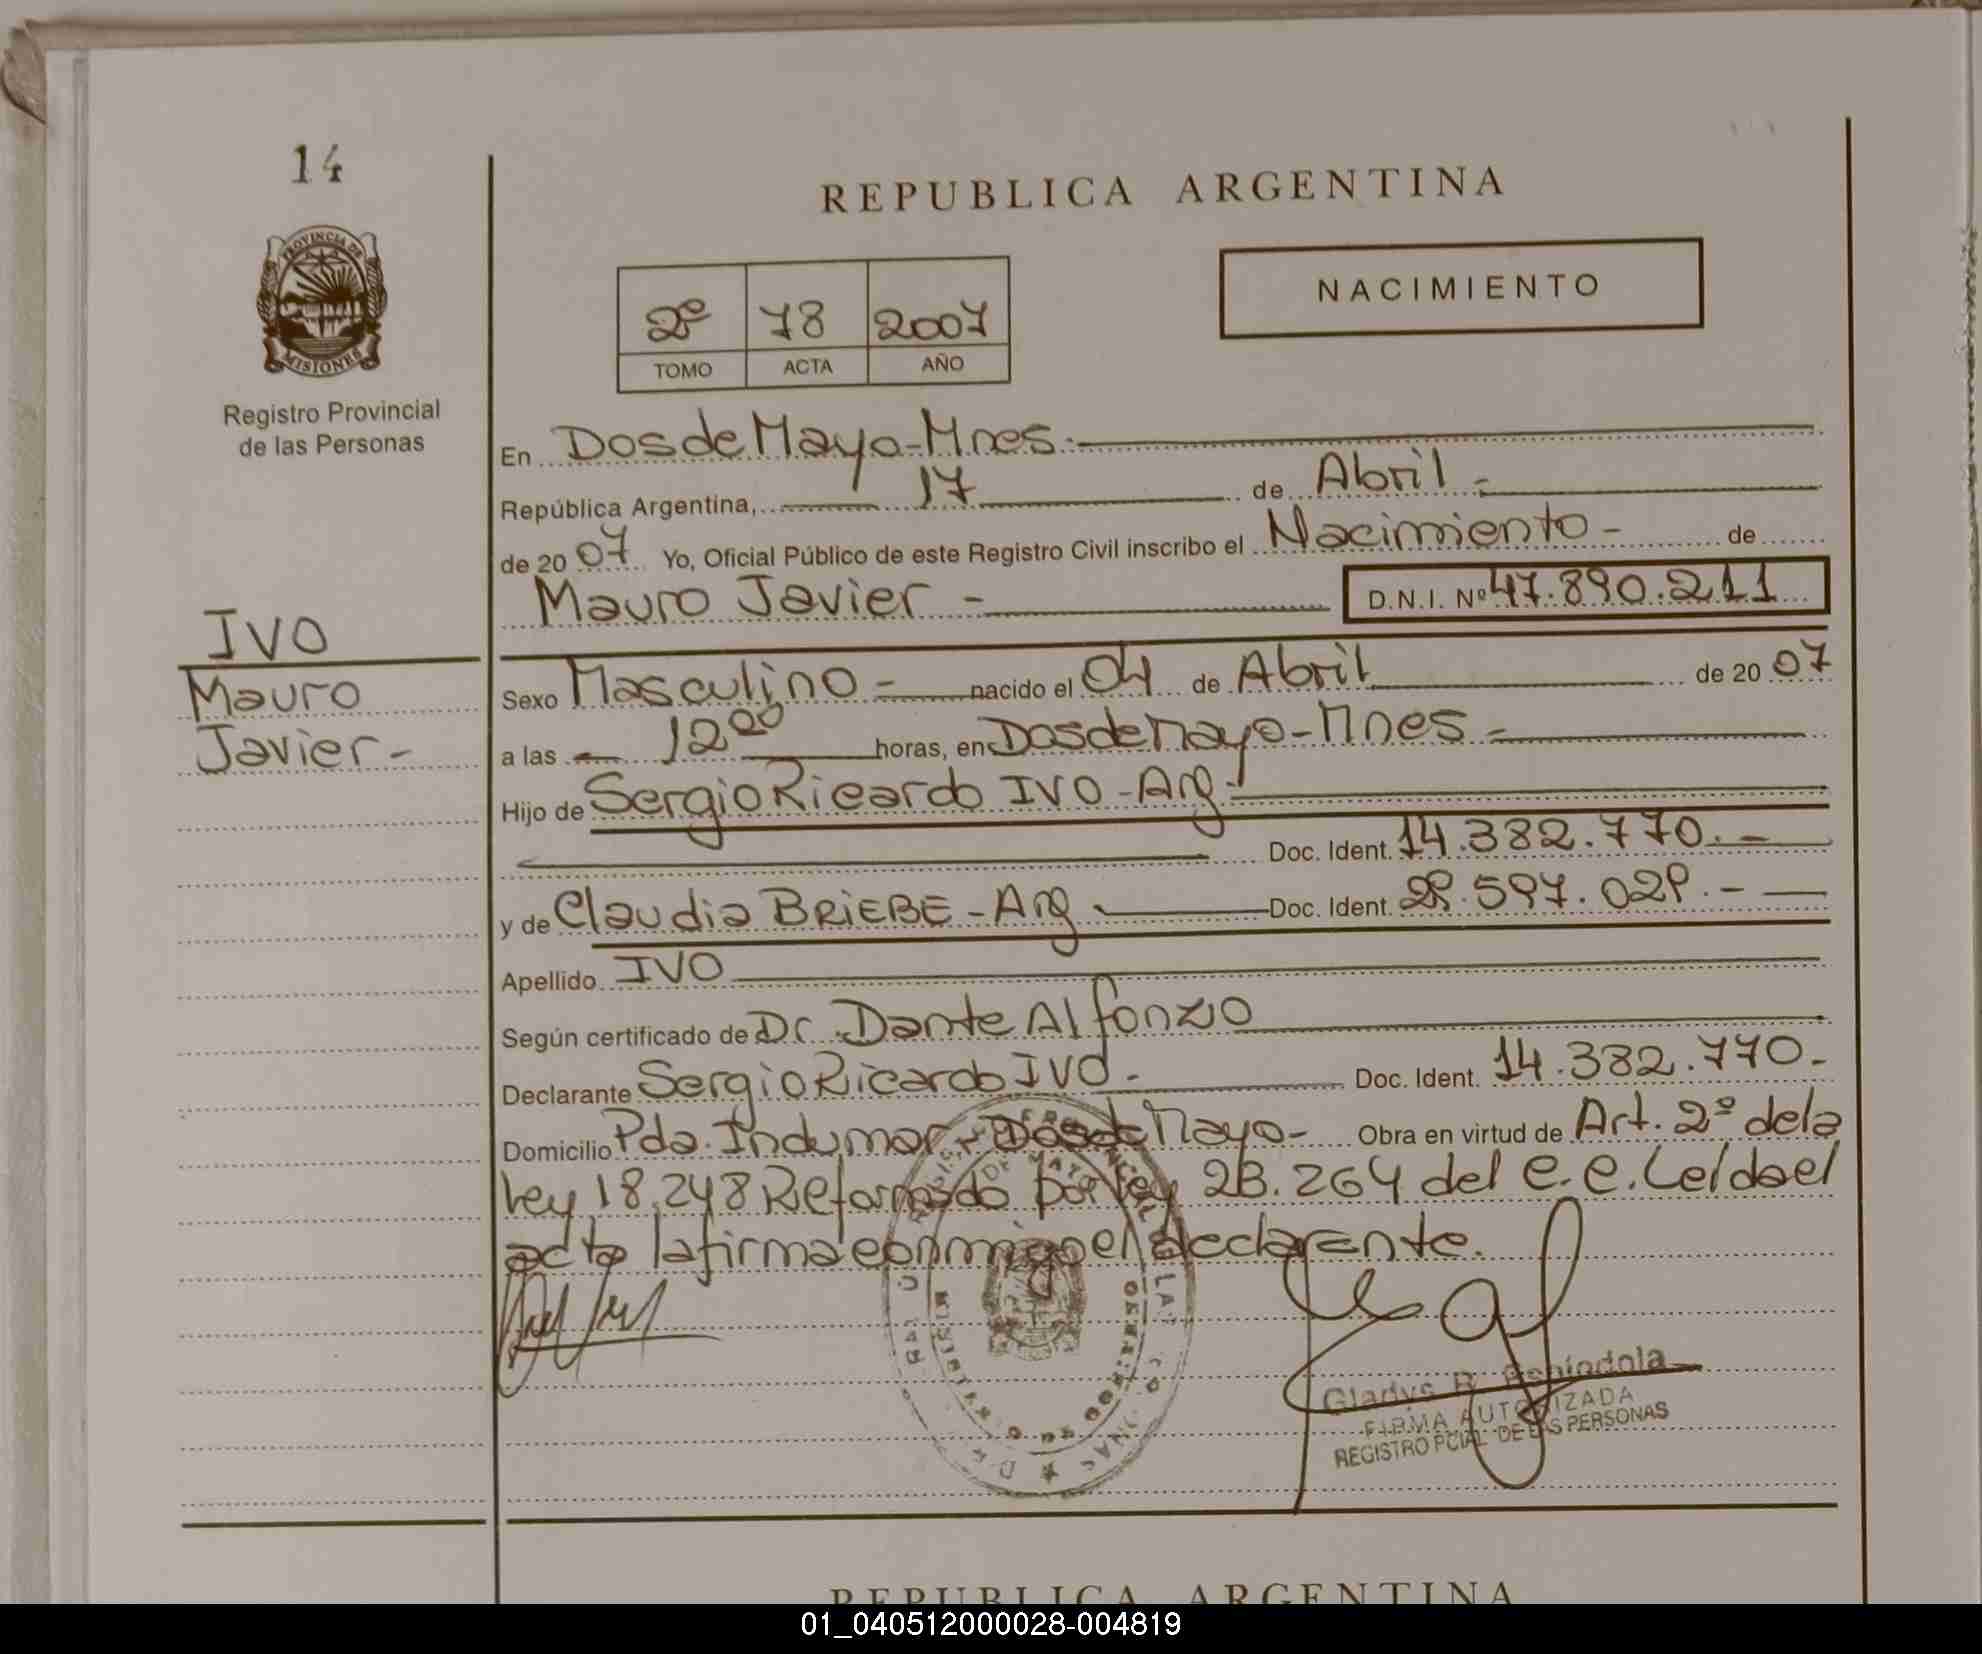 14
PROVINCIA DE
MISIONES
Registro Provincial
de las Personas
REPUBLICA ARGENTINA
NACIMIENTO
2º 78 2007
TOMO ACTA AÑO
En Dos de Mayo-Mnes.-
República Argentina, 17 de Abril -
de 2007 Yo, Oficial Público de este Registro Civil inscribo el Nacimiento - de
Mauro Javier - D.N.I. Nº 47.890.211
IVO
Mauro
Javier -
Sexo Masculino - nacido el 04 de Abril de 2007
a las 12 00 horas, en Dos de Mayo-Mnes -
Hijo de Sergio Ricardo IVO - Arg -
Doc. Ident. 14.382.770.-
y de Claudia BRIEBE - Arg - Doc. Ident. 29.597.029.-
Apellido IVO
Según certificado de Dr. Dante Alfonzo
Declarante Sergio Ricardo IVO - Doc. Ident. 14.382.770.-
Domicilio Pda. Indumar - Dos de Mayo - Obra en virtud de Art. 2º de la
Ley 18.248 Reformado por Ley 23.264 del C.C. Leída el
acta la firma conmigo el declarante.
Gladys R. Benindola
FIRMA AUTORIZADA
REGISTRO PCIAL DE LAS PERSONAS
REPUBLICA ARGENTINA
01_040512000028-004819